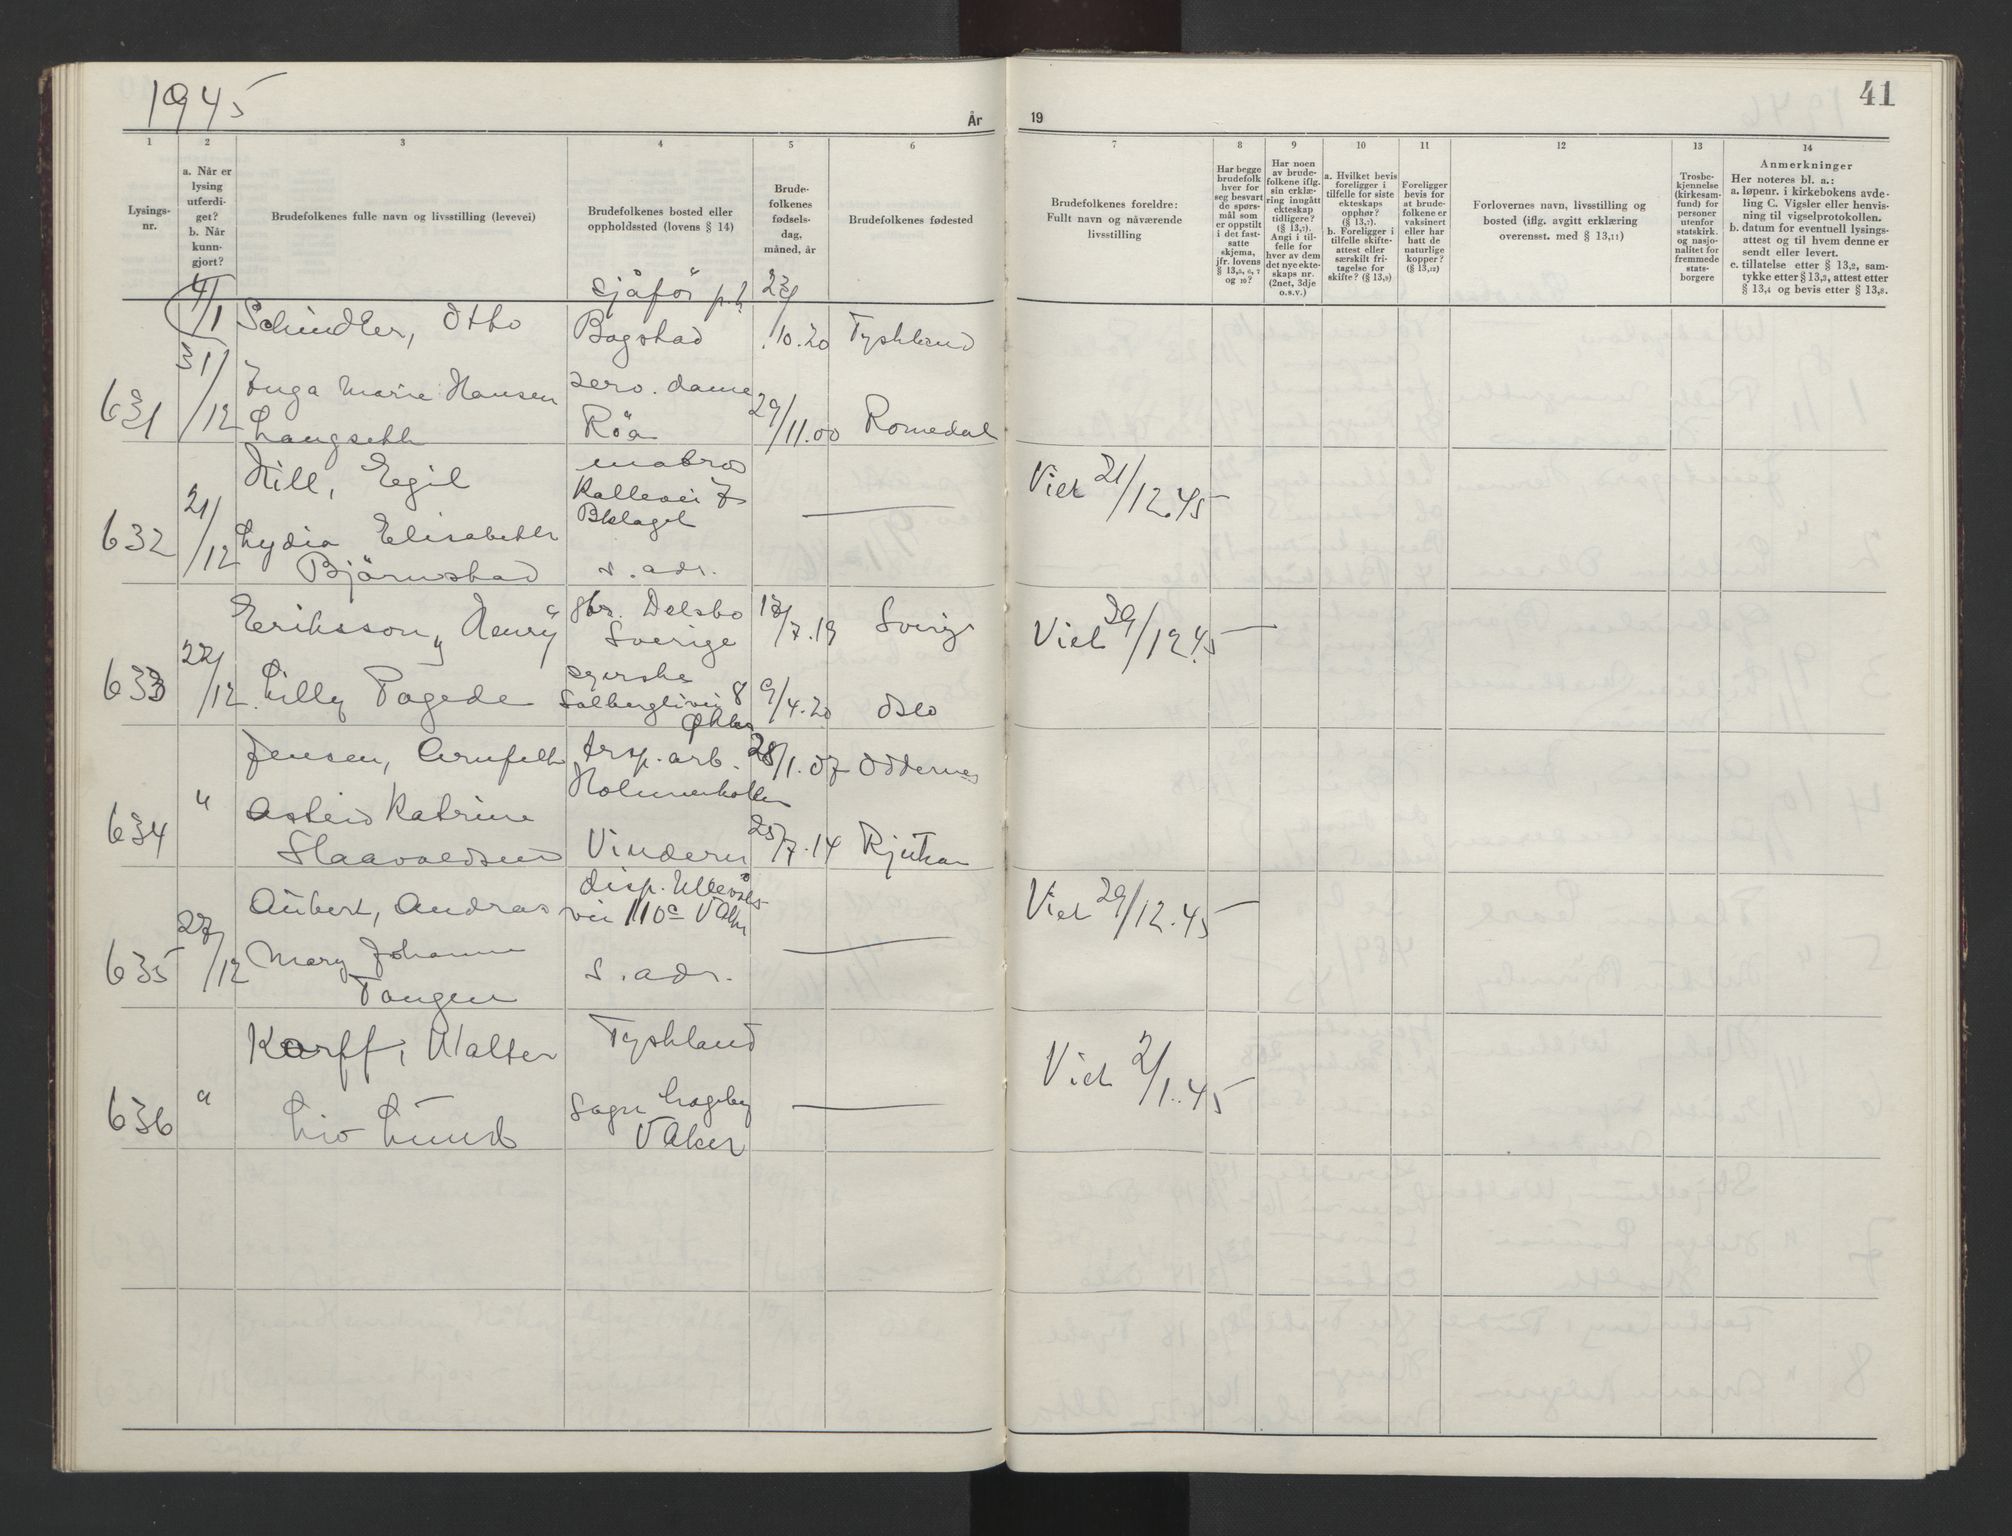 1945
År
19
41
1
2
3
4
5
6
7
8
9
10
11
12
13
14
Lysings-
nr.
a. Når er
lysing
utferdi-
get?
b. Når
kunn-
gjort?
Brudefolkenes fulle navn og livsstilling (levevei)
Brudefolkenes bosted eller
oppholdssted (lovens § 14)
Brude-
folkenes
fødsels-
dag,
måned, år
Brudefolkenes fødested
Brudefolkenes foreldre:
Fullt navn og nåværende
livsstilling
Har begge
brudefolk
hver for
seg besvart
de spørs-
mål som
er oppstilt
i det fast-
satte
skjema,
jfr. lovens
§ 13,5, 6, 7
og 10?
Har noen
av brude-
folkene iflg.
sin erklæ-
ring inngått
ekteskap
tidligere?
(§ 13,7).
Angi i til-
felle for
hver av dem
det nye ekte-
skaps nr.
(2net, 3dje
o.s.v.)
a. Hvilket bevis
foreligger i
tilfelle for siste
ekteskaps
opphør?
(§ 13,7).
b. Foreligger i
tilfelle skifte-
attest eller
særskilt fri-
tagelse for
skifte? (§ 13,9)
Foreligger
bevis for
at brude-
folkene er
vaksinert
eller har
hatt de
naturlige
kopper?
(§ 13,12)
Forlovernes navn, livsstilling og
bosted (iflg. avgitt erklæring
overensst. med § 13,11)
Trosbe-
kjennelse
(kirkesam-
fund) for
personer
utenfor
statskirk.
og nasjo-
nalitet for
fremmede
stats-
borgere
Anmerkninger
Her noteres bl. a.:
a. løpenr. i kirkebokens avde-
ling C. Vigsler eller henvis-
ning til vigselprotokollen.
b. datum for eventuell lysings-
attest og til hvem denne er
sendt eller levert.
c. tillatelse etter § 13,2, sam-
tykke etter § 13,3, attest etter
§ 13,4 og bevis etter § 13,8.
4/1 Schindler, Otto sjåfør p.t. Bogstad 23/10.20 Tyskland
631 31/12 Inga Marie Hansen serv. dame
Langseth Røa 29/11.00 Romedal
Hill, Egil Kallevei 7
Bklaget Viet 21/12.45
632 21/12 Lydia Elisabeth
Bjørnstad s. adr.
Eriksson, Henry gbr. Delsbo
Sverige 13/7.19 Sverige Viet 29/12.45 —
633 22/12 Lilly Pagede syerske
Solberglivei 8 9/4.20 Oslo
Jensen, Arnfelt trsp. arb.
Holmenkollen 28/1.07 Oddernes
634 " Astrid Katrine
Haavoldsen Vinderen 25/7.14 Rjukan
Aubert, Andreas disp. Ullevåls-
vei 110a V Aker Viet 29/12.45 —
635 27/12 Mary Johanne
Tangen s. adr.
Korff, Walter Tyskland Viet 2/1.45
636 " Liv Lund Sogn Hageby
V Aker